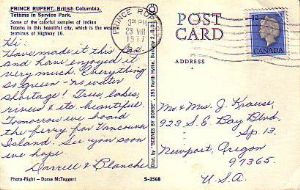 PRINCE RUPERT, British Columbia.
Totems in Service Park.
Some of the colorful samples of Indian
Totems in this beautiful city, which is the western
terminus of Highway 16.
Hi:
Have made it this
far and have enjoyed it
very much. Everything
so green, no water
shortage! Trees, lakes,
rivers & its beautiful.
Tomorrow we board
the ferry for Vancouver
Island. See you soon
we hope
Darrell & Blanche
Photo-Flight - Duncan McTaggart
S-2568
PRINCE RUPERT
PM
1977
POST
CARD
ADDRESS
12
CANADA
Mr & Mrs J. Krause,
923 S.E. Bay Blvd.
Sp. 13.
Newport, Oregon
97365
U.S.A.